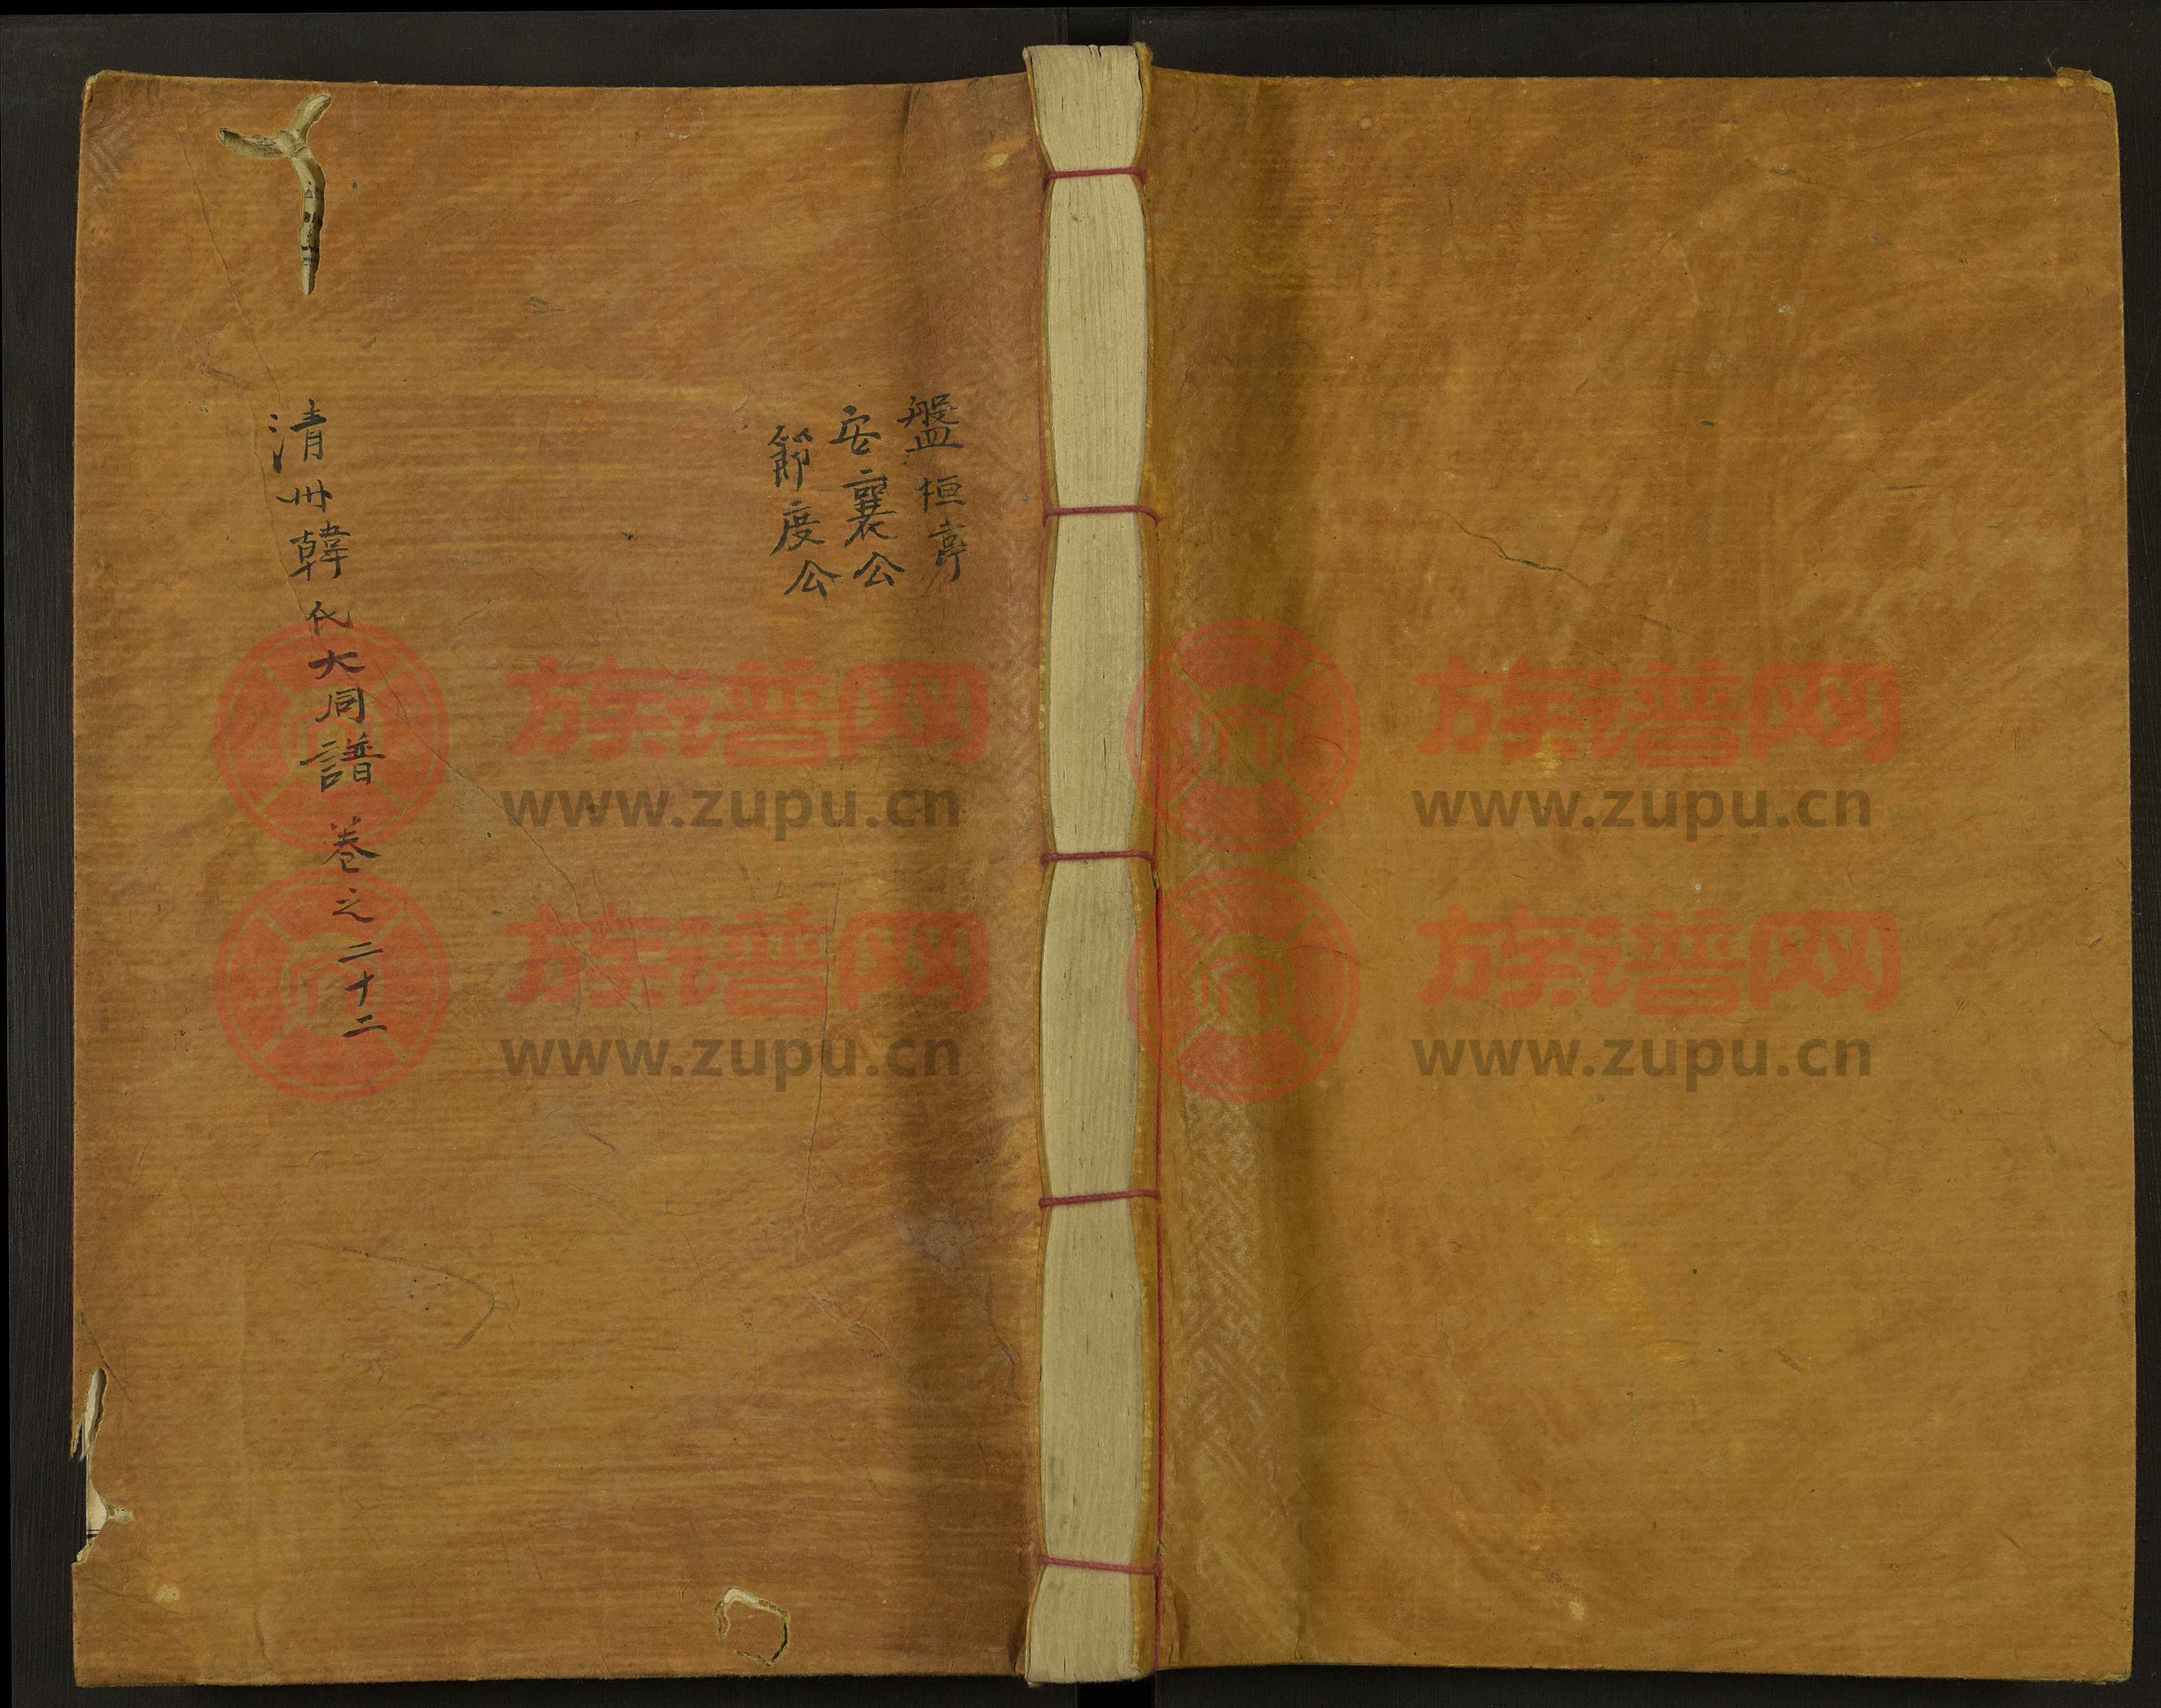 盤桓亭
安襄公
節度公
清州韓氏大同譜 卷之二十二
族谱网
www.zupu.cn
族谱网
www.zupu.cn
族谱网
www.zupu.cn
族谱网
www.zupu.cn